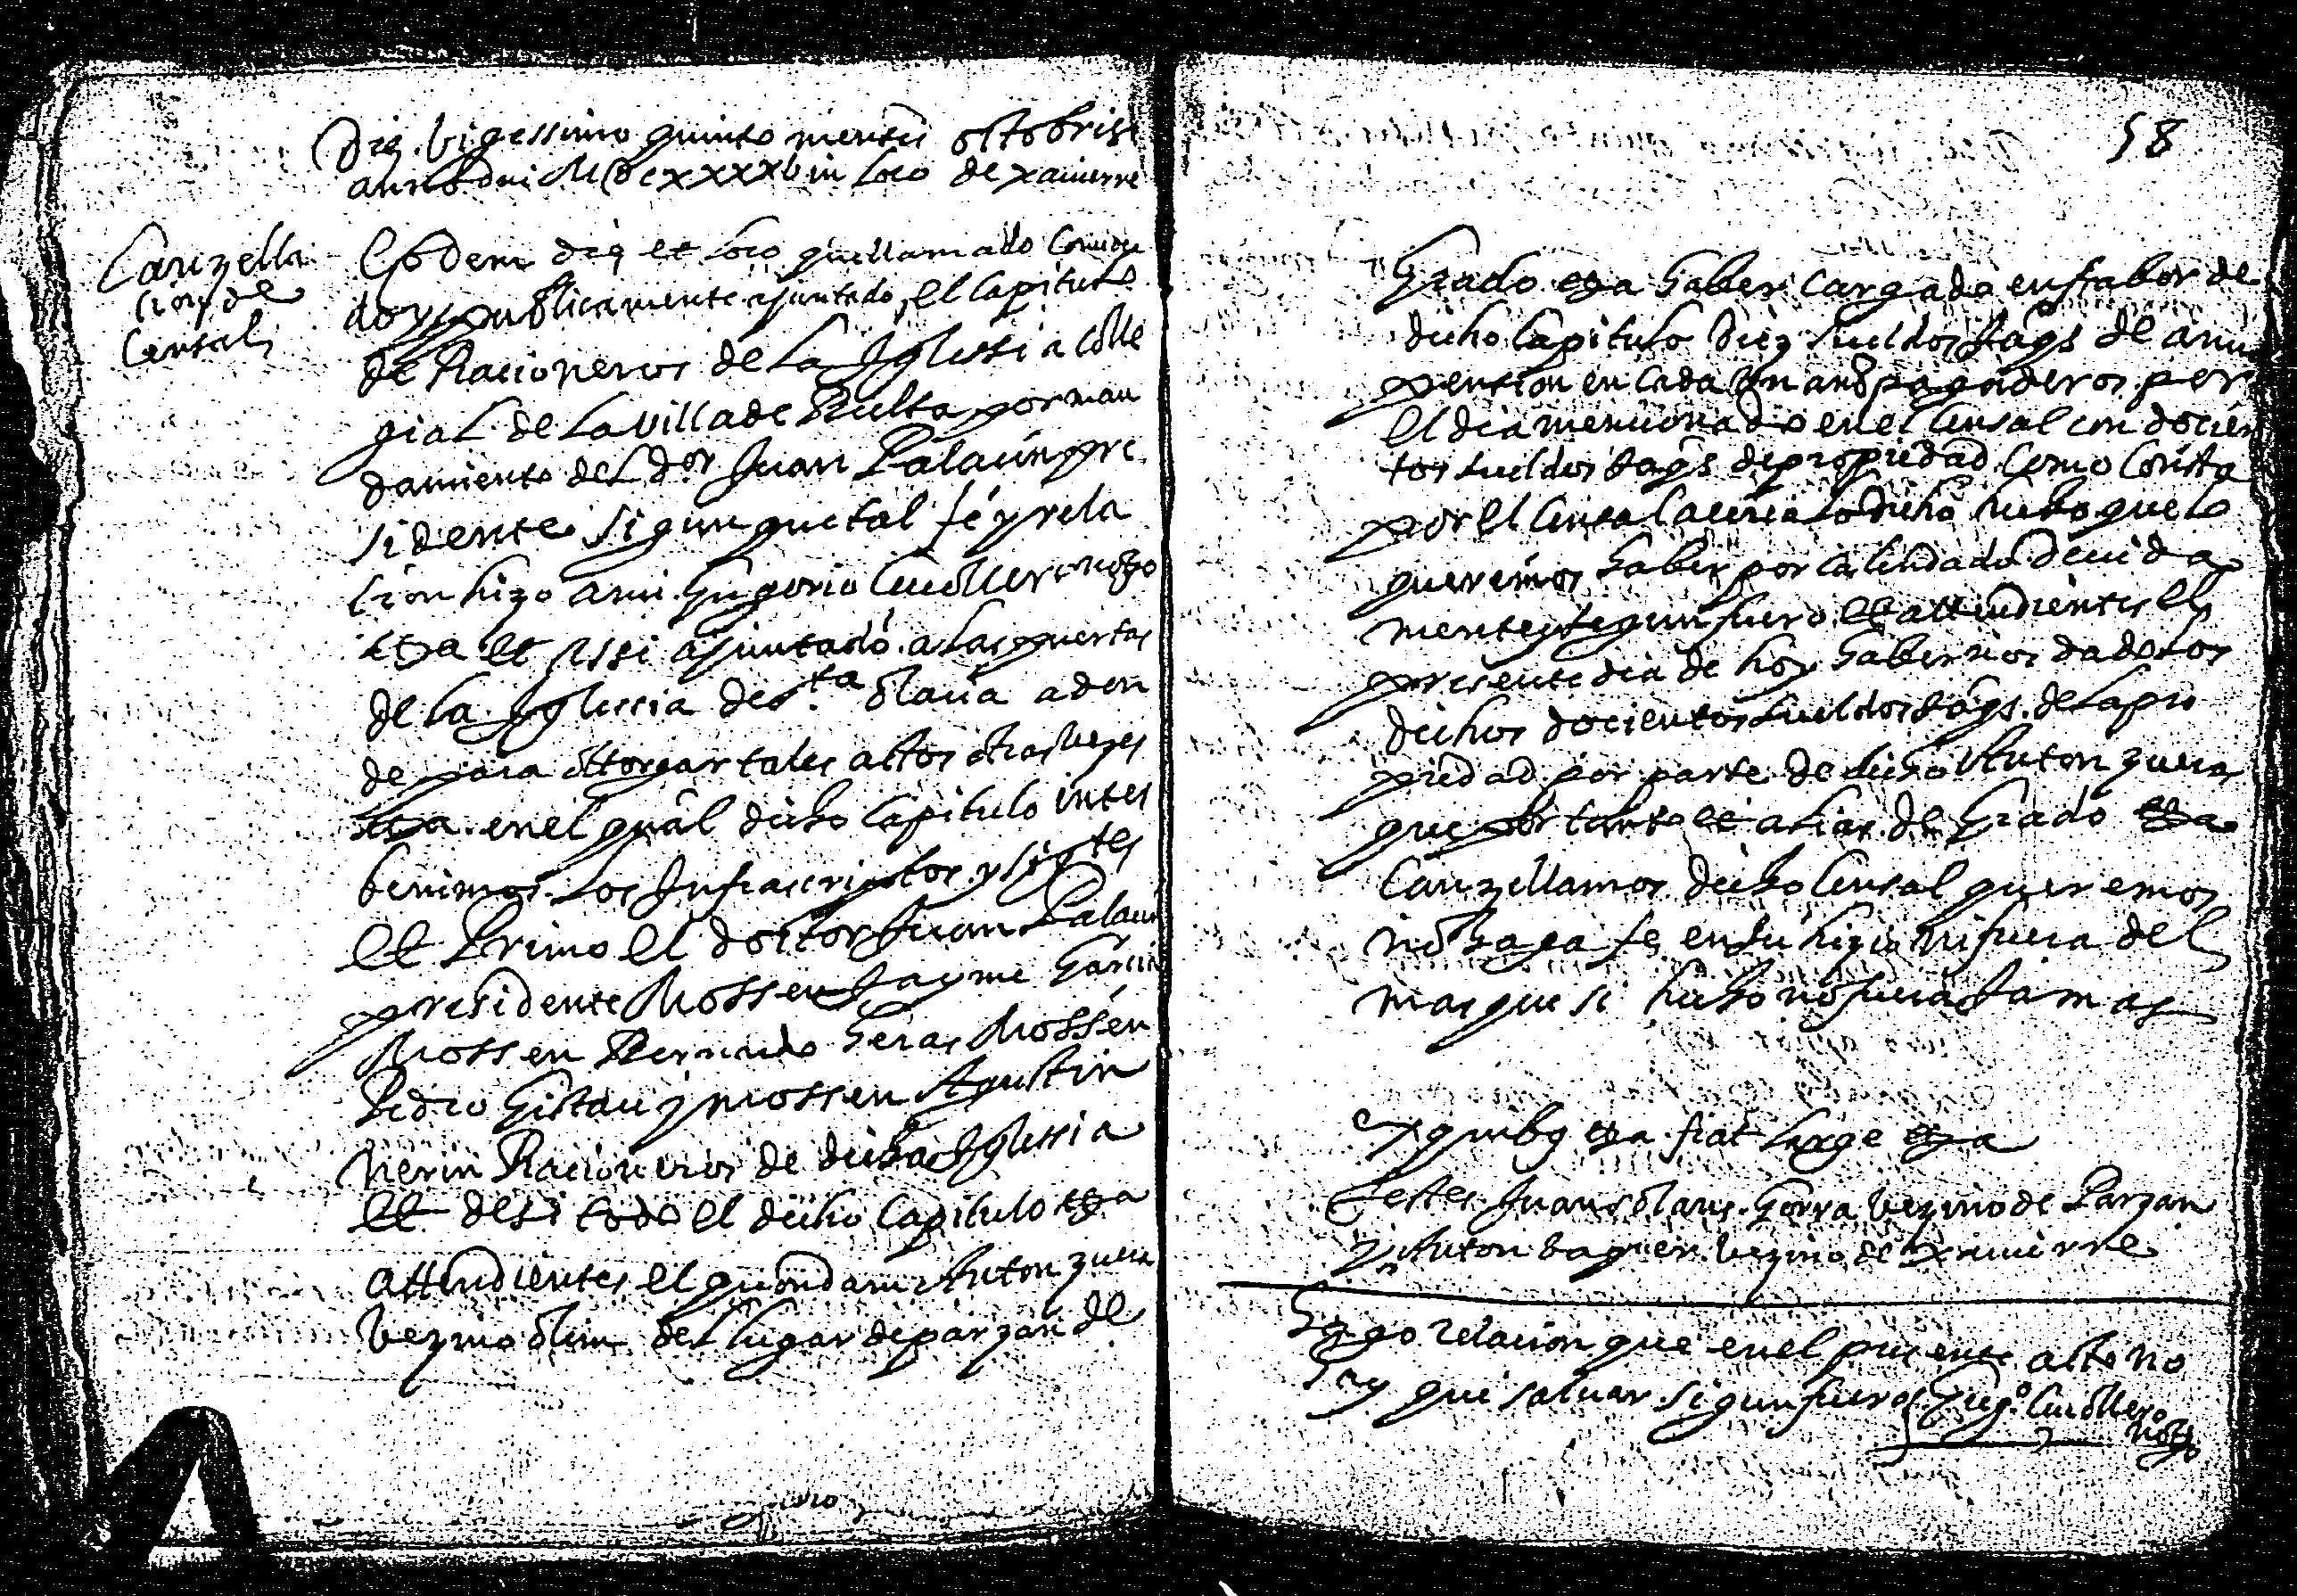 Die vigessimo quinto mensis octobris
anno dni MDCxxxxv in loco de xavierre
Canzella
cion de
Censal
Eodem die et loco que llamado convoca
do y publicamente ajuntado el Capitulo
de Racioneros de la Iglessia colle
gial de la villa de Bielsa por man
damiento del Dor Juan Palacin pre
sidente sigun que tal fé y rela
cion hizo a mi Gregorio Cucollero nogo
etza et assi ajuntado a las puertas
de la Iglessia de sta Olaria adon
de para ottorgar tales actos otras vezes
etza en el qual dicho Capitulo inter
benimos los Infrascriptos y sigtes
et Primo el doctor Juan Palacin
presidente Mossen Jayme Garcia
Mossen Bernardo Heras Mossen
Pedro Gistau y mossen Agustin
Nerin Racioneros de dicha Iglessia
et desi todo el dicho Capitulo etza
attendientes el quondam Anton zuera
vezino olim del lugar de parzan de
58
Grado etza haber cargado en fabor de
dicho Capitulo diez sueldos Jaqs de annua
pension en cada un año pagaderos por
el dia mencionado en el Censal con docien
tos sueldos Jaqs de propiedad como consta
por el Censal acerca lo dicho hecho que lo
queremos haber por calendado devida
mente y segun fuero et attendientes el
presente dia de hoy habernos dado los
dichos docientos sueldos Jaqs de la pro
piedad por parte de dicho Anton zuera
que por tanto et alias de Grado etza
Canzellamos dicho Censal queremos
no haga fe en juhizio ni fuera del
mas que si hecho no fuera Jamas
ex quibg etza fiat large etza
Testes Juan Gorra vezino de Parzan
y Anton vezino de xavierre
Hago relacion que en el presente acto no
hay que salvar sigun fuero Grego Cucollero
nogo